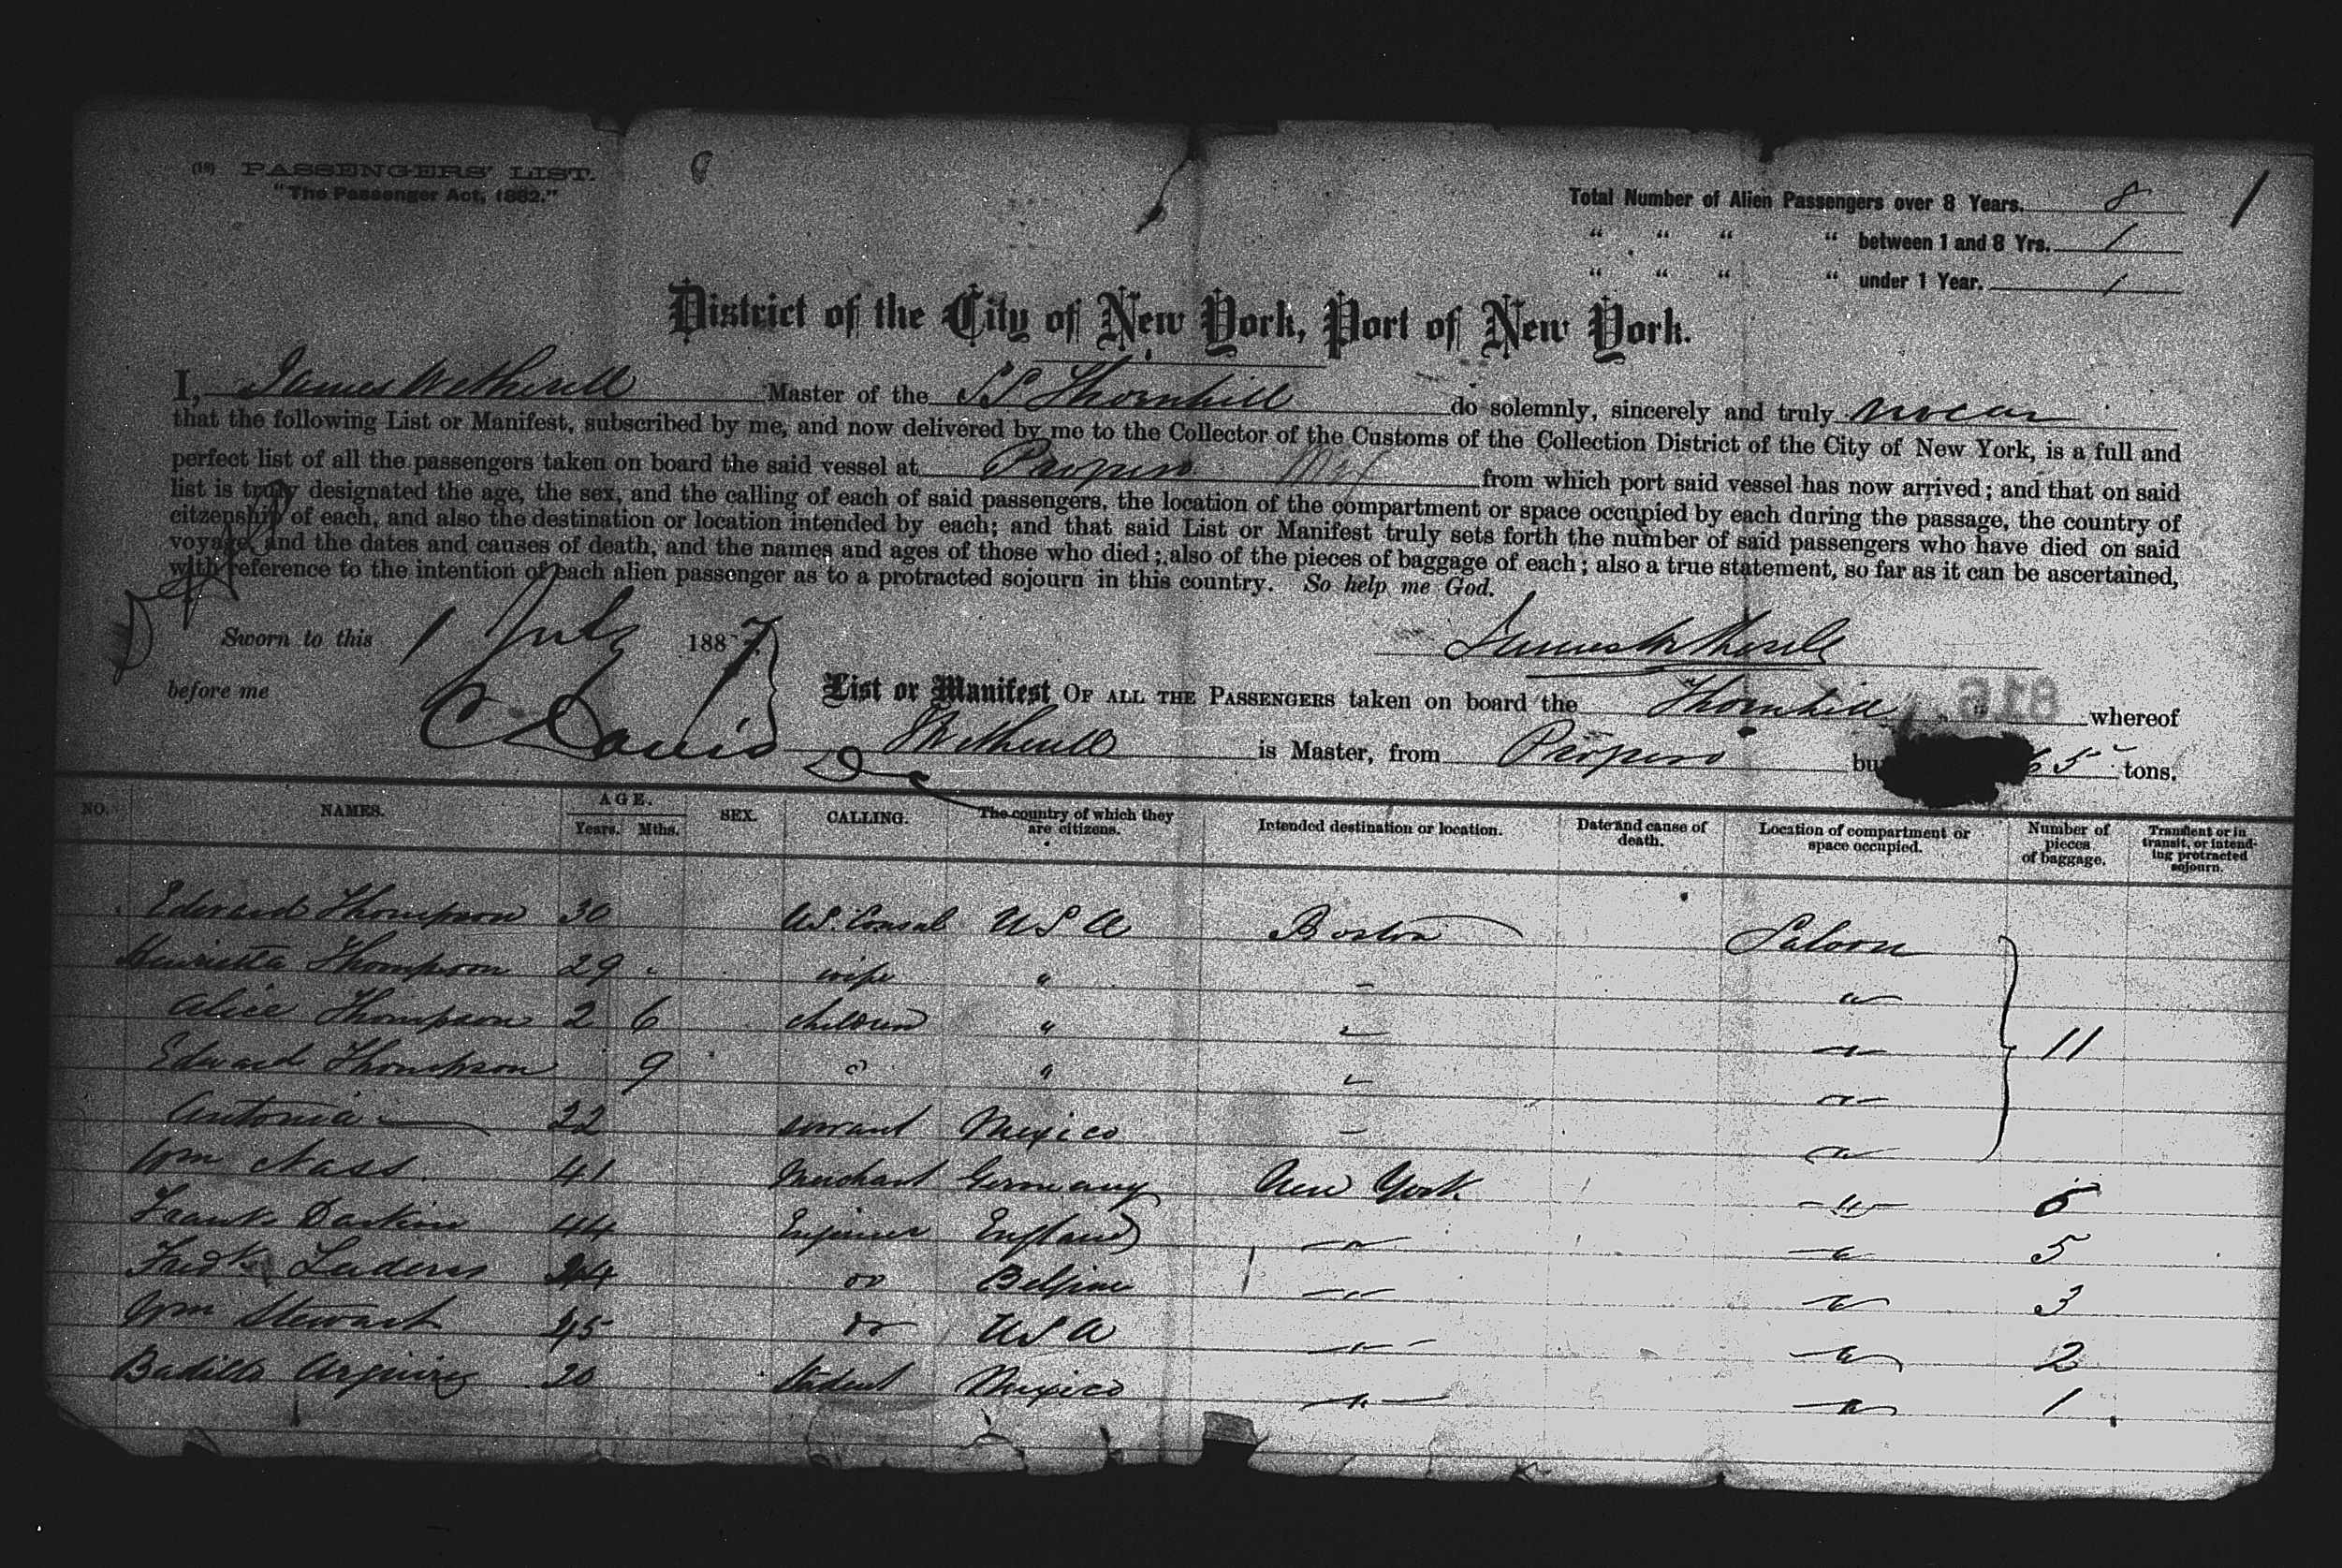 (18) PASSENGERS' LIST.
"The Passenger Act, 1882."
Total Number of Alien Passengers over 8 Years. 8
" " " " between 1 and 8 Yrs. 1
" " " " under 1 Year. 1
1
District of the City of New York, Port of New York.
I, James Wetherell Master of the SS Thornhill do solemnly, sincerely and truly swear
that the following List or Manifest, subscribed by me, and now delivered by me to the Collector of the Customs of the Collection District of the City of New York, is a full and
perfect list of all the passengers taken on board the said vessel at Progreso Mex from which port said vessel has now arrived; and that on said
list is truly designated the age, the sex, and the calling of each of said passengers, the location of the compartment or space occupied by each during the passage, the country of
citzenship of each, and also the destination or location intended by each; and that said List or Manifest truly sets forth the number of said passengers who have died on said
voyage, and the dates and causes of death, and the names and ages of those who died; also of the pieces of baggage of each; also a true statement, so far as it can be ascertained,
with reference to the intention of each alien passenger as to a protracted sojourn in this country. So help me God.
Sworn to this 1 July 1887
James Wetherell
before me
List or Manifest OF ALL THE PASSENGERS taken on board the Thornhill whereof
816
Wetherell is Master, from Progreso bu 65 tons.
NO. NAMES. AGE. Years. Mths. SEX. CALLING. The country of which they are citizens. Intended destination or location. Date and cause of death. Location of compartment or space occupied. Number of pieces of baggage. Transient or in transit, or intending protracted sojourn.
Edward Thompson 30 U.S. Consul U S A Boston Saloon
Henrietta Thompson 29 wife " " "
Alice Thompson 2 6 children " " " 11
Edward Thompson 9 " " " "
Antonia 22 servant Mexico " "
Wm Nass 41 Merchant Germany New York " 5
Frank 44 Engineer England " " 5
Fredk Luders 24 do " " 3
Wm Stewart 45 do U S A " " 2
Badillo 20 Student Mexico " " 1